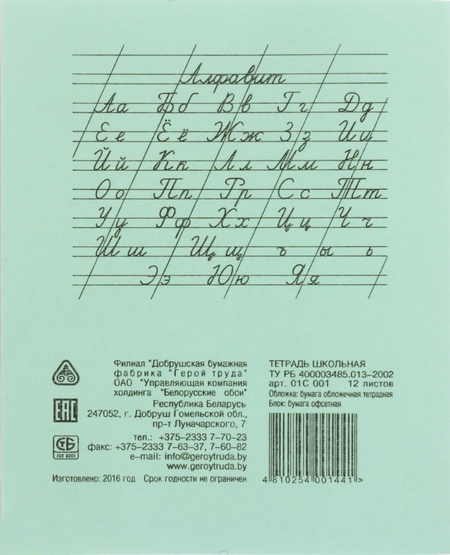 Алфавит
Аа Бб Вв Гг Дд
Ее Ёё Жж Зз Ии
Йй Кк Лл Мм Нн
Оо Пп Рр Сс Тт
Уу Фф Хх Цц Чч
Шш Щщ ъ ы ь
Ээ Юю Яя
Филиал "Добрушская бумажная
фабрика "Герой труда"
ОАО "Управляющая компания
холдинга "Белорусские обои"
Республика Беларусь
247052, г. Добруш Гомельской обл.,
пр-т Луначарского, 7
тел.: +375-2333 7-70-23
факс: +375-2333 7-63-37, 7-60-82
e-mail: info@geroytruda.by
www.geroytruda.by
Изготовлено: 2016 год Срок годности не ограничен
EAC
СТБ
ТЕТРАДЬ ШКОЛЬНАЯ
ТУ РБ 400003485.013-2002
арт. 01С 001 12 листов
Обложка: бумага обложечная тетрадная
Блок: бумага офсетная
4 810254 001441 >